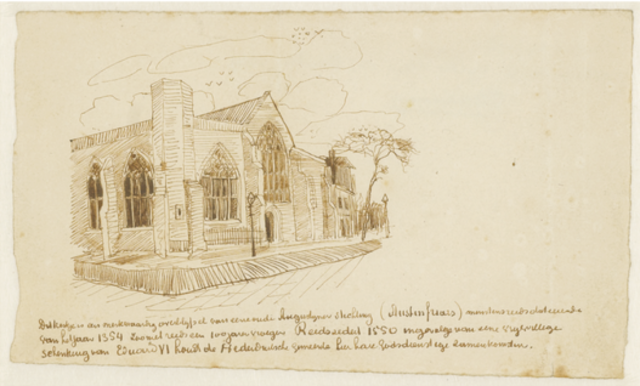 Dit kerkje is een merkwaardig overblijfsel van eene oude Augustijner stichting (Austin friars) minstens reeds dateerende
van het jaar 1354 zoo niet reeds een 100 jaren vroeger Reeds sedert 1550 ingevolge van eene vrijwillige
schenking van Eduard VI houdt de Nederlandsche gemeente hier hare Godsdienstige zamenkomsten.